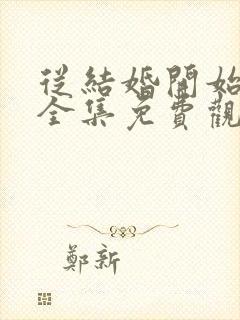 從結婚開始
全集免費觀
鄭新